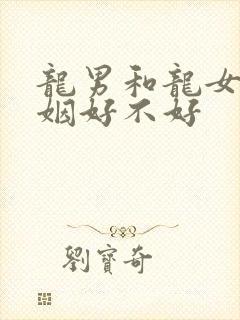 龍男和龍女
姻好不好
劉寶奇